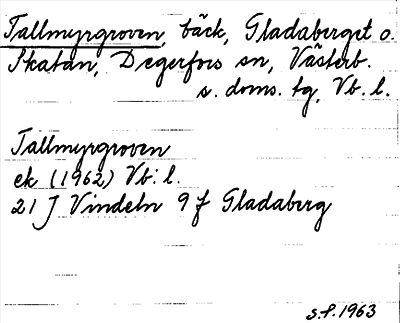 Tallmyrgroven, bäck, Gladaberget o.
Skatan, Degerfors sn, Västerb.
s. doms. tg, Vb. l.
Tallmyrgroven
ek (1962) Vb: l.
21 J Vindeln 9 f Gladaberg
s.f. 1963